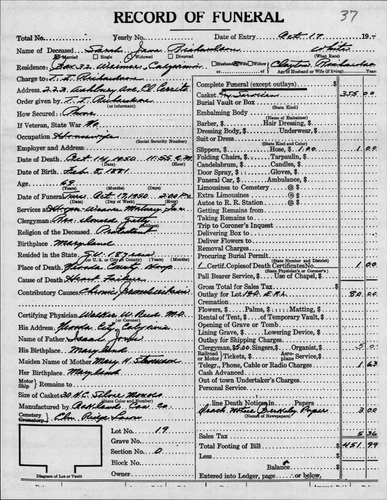 RECORD OF FUNERAL
37
Total No. Yearly No. Date of Entry Oct. 17 19
Name of Deceased Sarah Jane Richardson White
Married Single Widowed Divorced
Residence: Box 32 Weimar, California Husband Wife Widow of Clayton Richardson
Charge to Richardson Age of Husband or Wife (if living) Years
Address: 223 Ashbury Ave. El Cerrito
Order given by Richardson
How Secured: Phone
If Veteran, State War No
Occupation Housewife
Employer and Address
Date of Death Oct. 14, 1950 11:55 P.M.
Date of Birth Feb. 5, 1881
Age 69
(Years) (Months) (Days)
Date of Funeral Tues. Oct. 17, 1950 2:00 P.M.
Services at
Clergyman Rev. Howard
Religion of the Deceased Protestant
Birthplace Maryland
Resided in the State
Place of Death Nevada County Hosp.
Cause of Death Heart Failure
Contributory Causes Chronic
Certifying Physician Walter W. Reed M.D.
His Address Nevada City California
Name of Father Isaac Jones
His Birthplace Maryland
Maiden Name of Mother Mary A.
Her Birthplace Maryland
Motor Ship Remains to
Size of Casket
(State Color and Number)
Manufactured by Oakland Cas. Co.
Cemetery
Lot No. 19
Grave No.
Section No. A
Block No.
Owner
Diagram of Lot or Vault
Complete Funeral (except outlays) $
Casket Services 355.00
Burial Vault or Box
(State Kind)
Embalming Body
(Name of Embalmer)
Barber, $ Hair Dressing, $
Dressing Body, $ Underwear, $
Suit or Dress
(State Kind and Color)
Slippers, $ Hose, $ 1.00 1.00
Folding Chairs, $ Tarpaulin, $
Candelabrum, $ Candles, $
Door Spray, $ Gloves, $
Funeral Car, $ Ambulance, $
Limousines to Cemetery @ $
Extra Limousines @ $
Autos to R. R. Station @ $
Getting Remains from
Taking Remains to
Trip to Coroner's Inquest
Delivering Box to
Deliver Flowers to
Removal Charges
Procuring Burial Permit
1 Certif. Copies of Death Certificates No. 1 1.00
(State Physician's or Coroner's)
Pall Bearer Service, $ Use of Chapel, $
Gross Total for Sales Tax $
Outlay for Lot 80.00
Cremation
Flowers, $ Palms, $ Matting, $
Rental of Tent, $ of Temporary Vault, $
Opening of Grave or Tomb
Lining Grave, $ Lowering Device, $
Outlay for Shipping Charges
Clergyman, $5.00 Singers, $ Organist, $ 5.00
Railroad or Motor Tickets, $ Aero Service, $
Telegr., Phone, Cable or Radio Charges 1.63
Cash Advanced
Out of town Undertaker's Charges
Personal Service
line Death Notices in Papers
Berkeley Paper 3.00
(Names of Newspapers)
Sales Tax 5.36
Total Footing of Bill $ 451.99
Less
Balance $
Entered into Ledger, page or below.